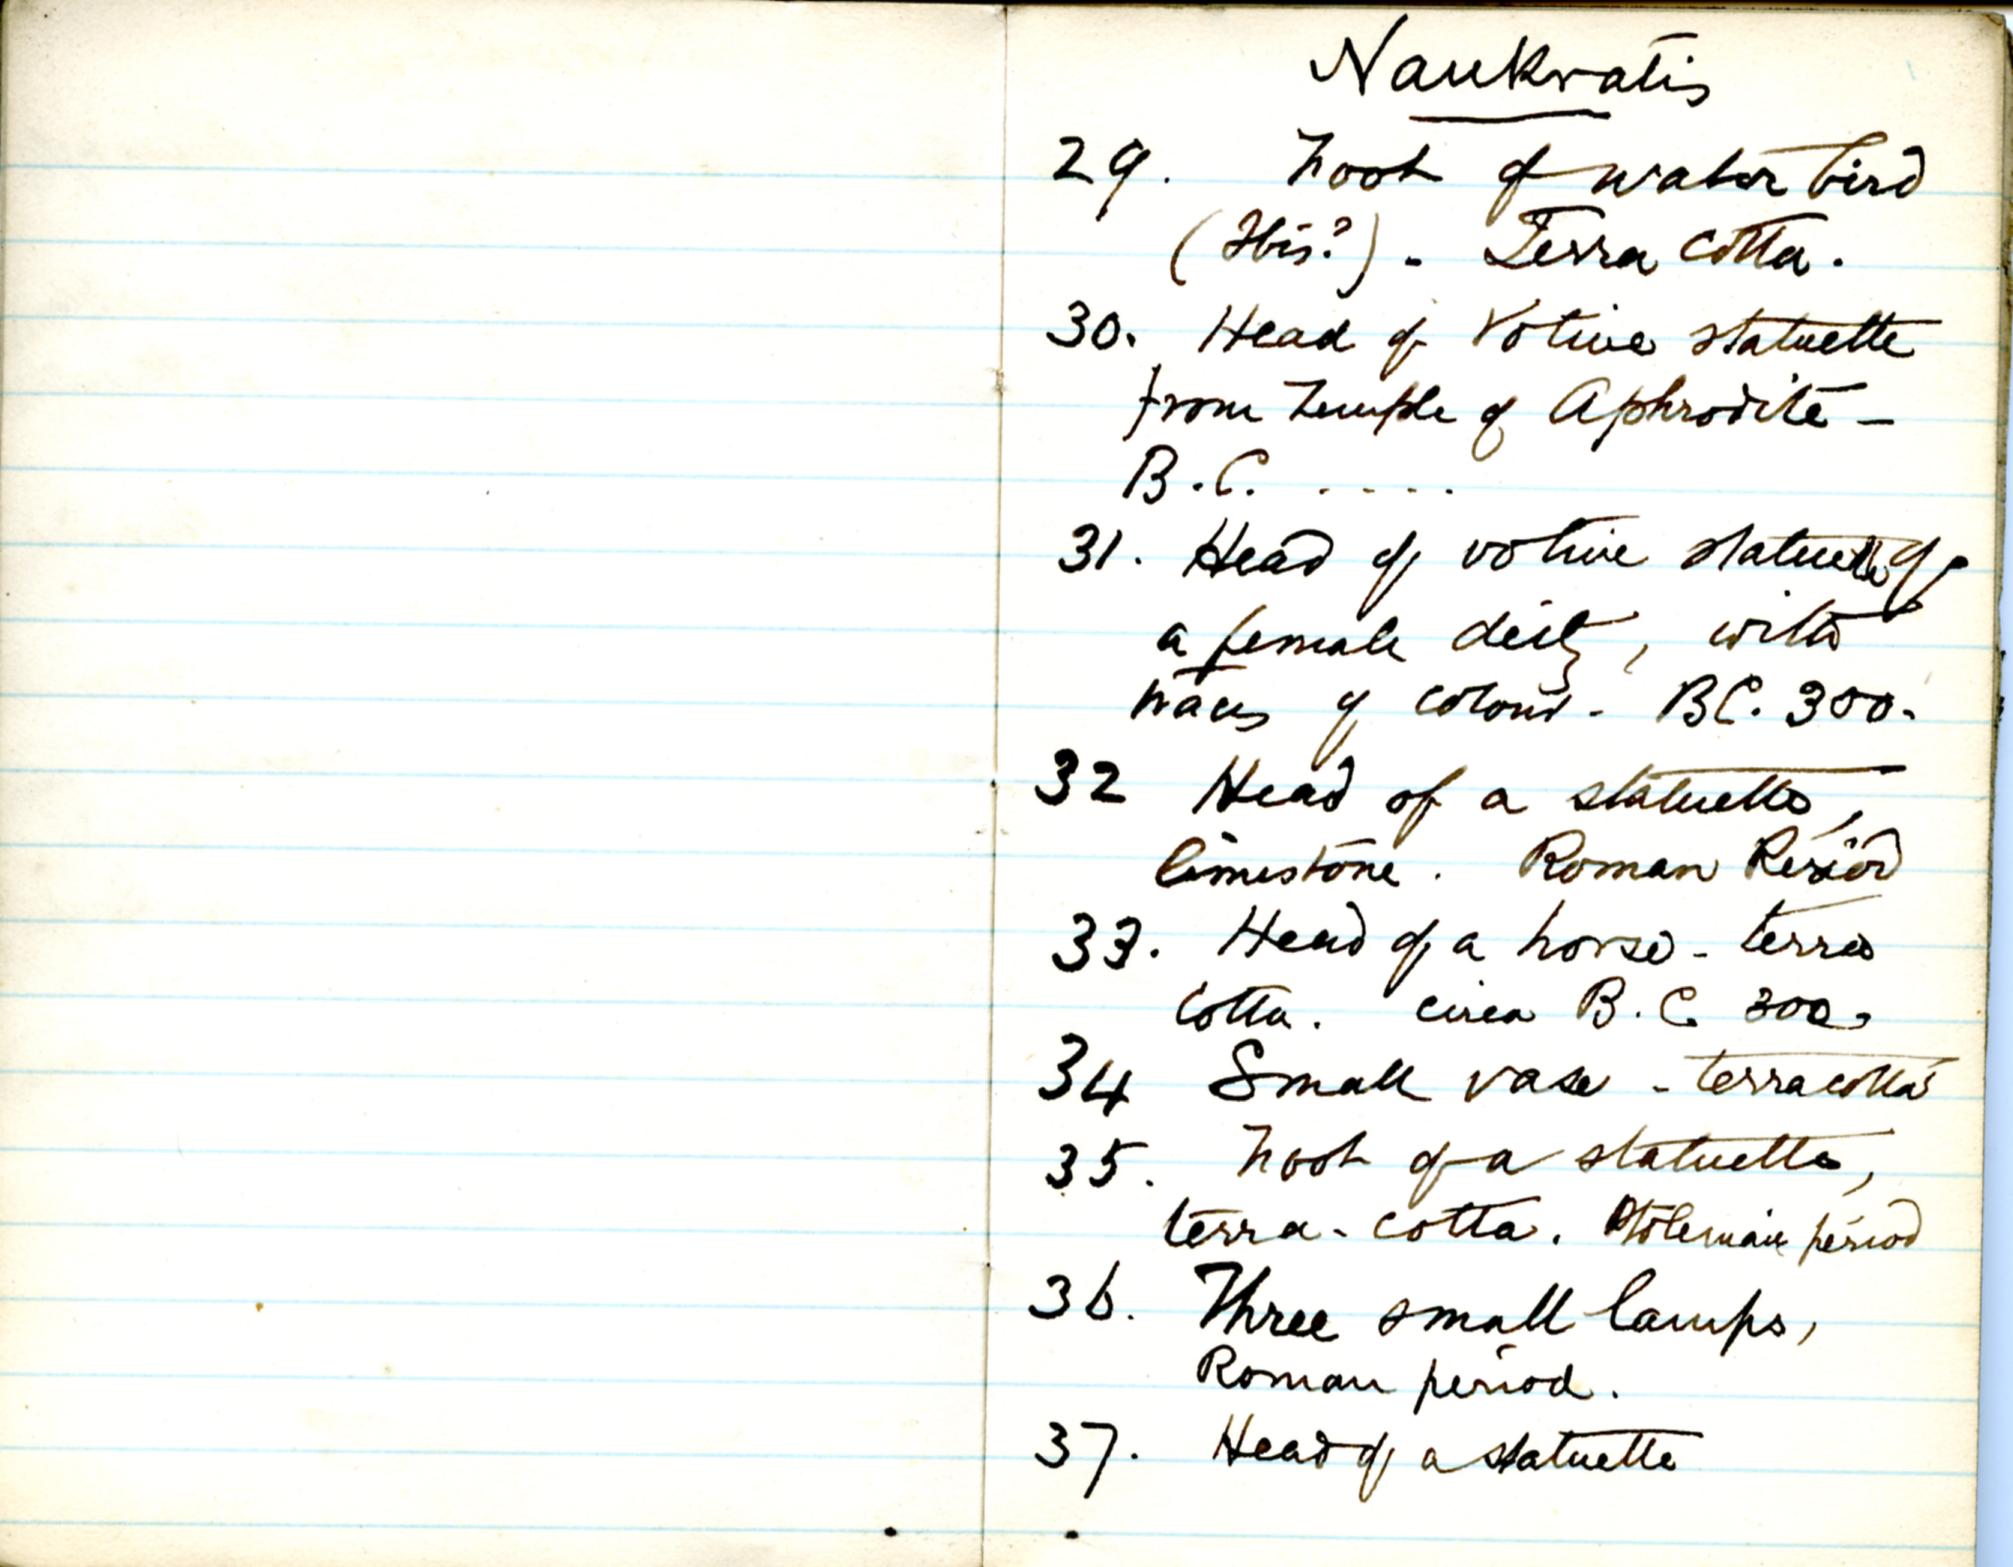 Naukratis
29. Foot of water bird
(Ibis?). Terra Cotta.
30. Head of Votive statuette
from Temple of Aphrodite -
B.C. ....
31. Head of votive statuette of
a female deity, with
traces of colour. BC. 300.
32 Head of a statuette,
limestone. Roman Period
33. Head of a horse - terra
cotta. circa B.C. 300.
34 Small vase - terracotta
35. Foot of a statuette,
terra-cotta. Ptolemaic period
36. Three small lamps,
Roman period.
37. Head of a statuette